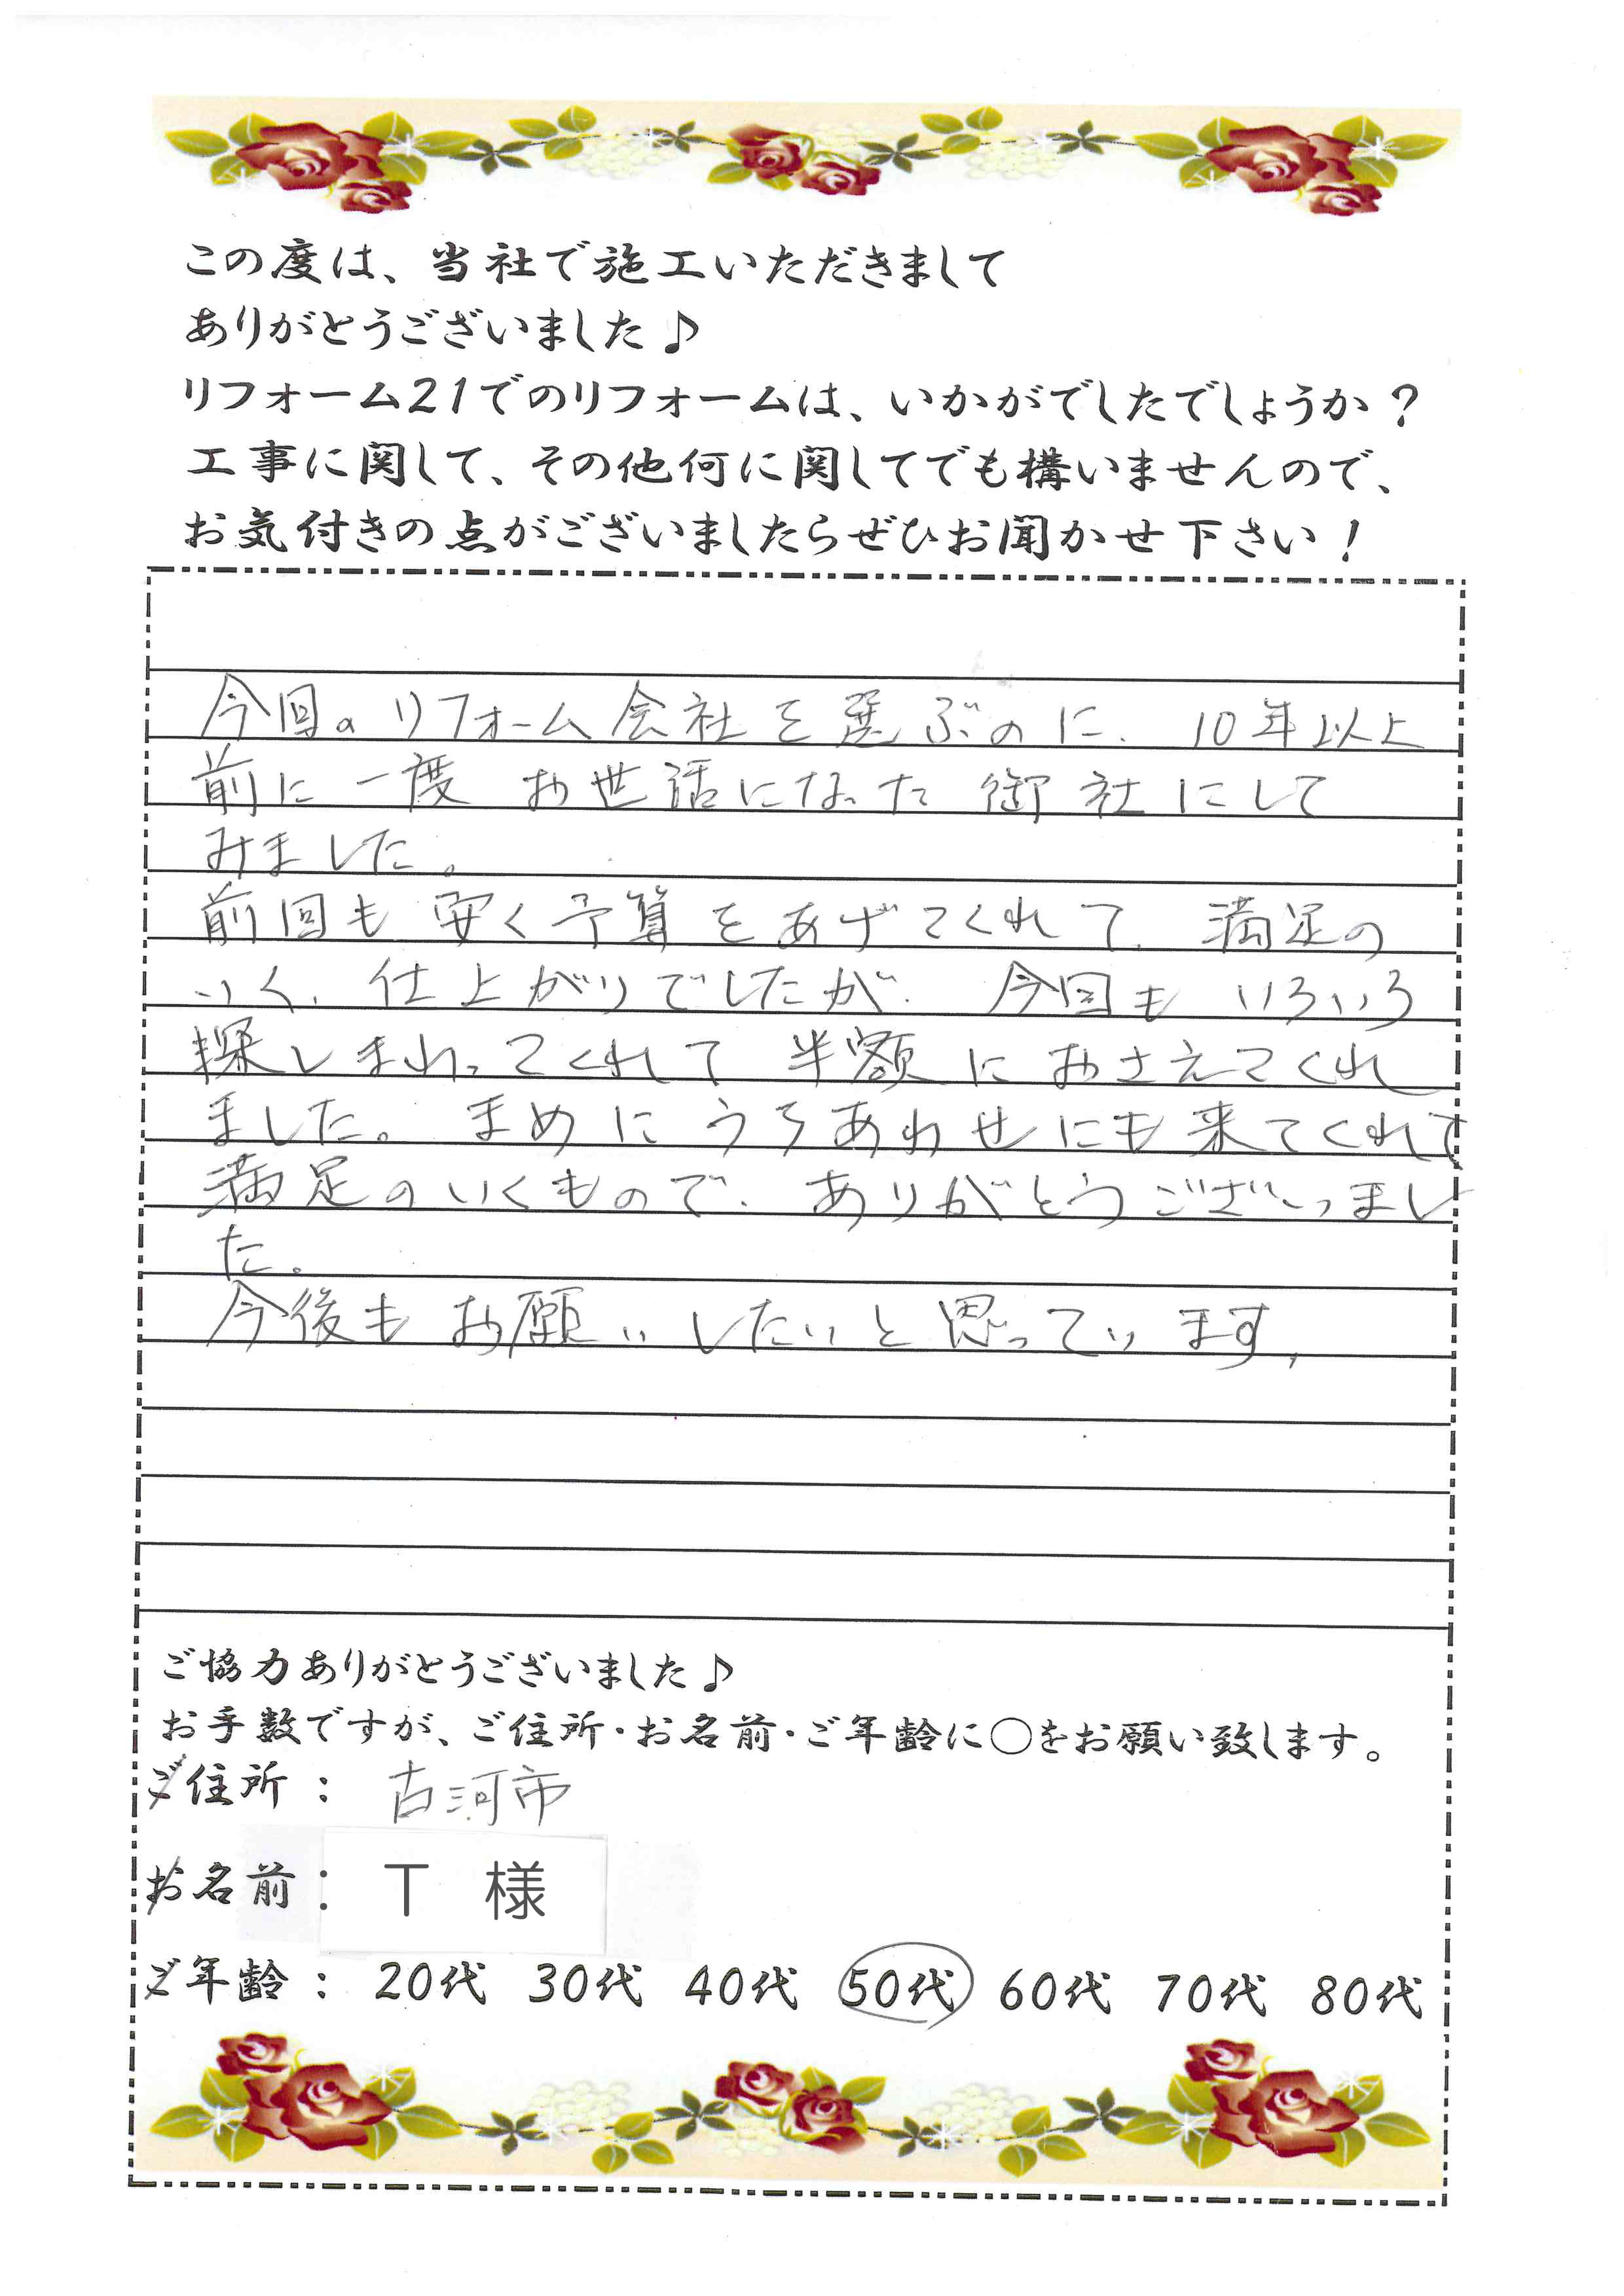 この度は、当社で施工いただきまして
ありがとうございました♪
リフォーム21でのリフォームは、いかがでしたでしょうか？
工事に関して、その他何に関してでも構いませんので、
お気付きの点がございましたらぜひお聞かせ下さい！
今回のリフォーム会社を選ぶのに、10年以上
前に一度お世話になった御社にして
みました。
前回も安く予算をあげてくれて、満足の
いく、仕上がりでしたが、今回もいろいろ
探しまわってくれて半額におさえてくれ
ました。まめにうちあわせにも来てくれて
満足のいくもので、ありがとうございまし
た。
今後もお願いしたいと思っています。
ご協力ありがとうございました♪
お手数ですが、ご住所・お名前・ご年齢に○をお願い致します。
ご住所： 古河市
お名前： T 様
ご年齢： 20代 30代 40代 50代 60代 70代 80代